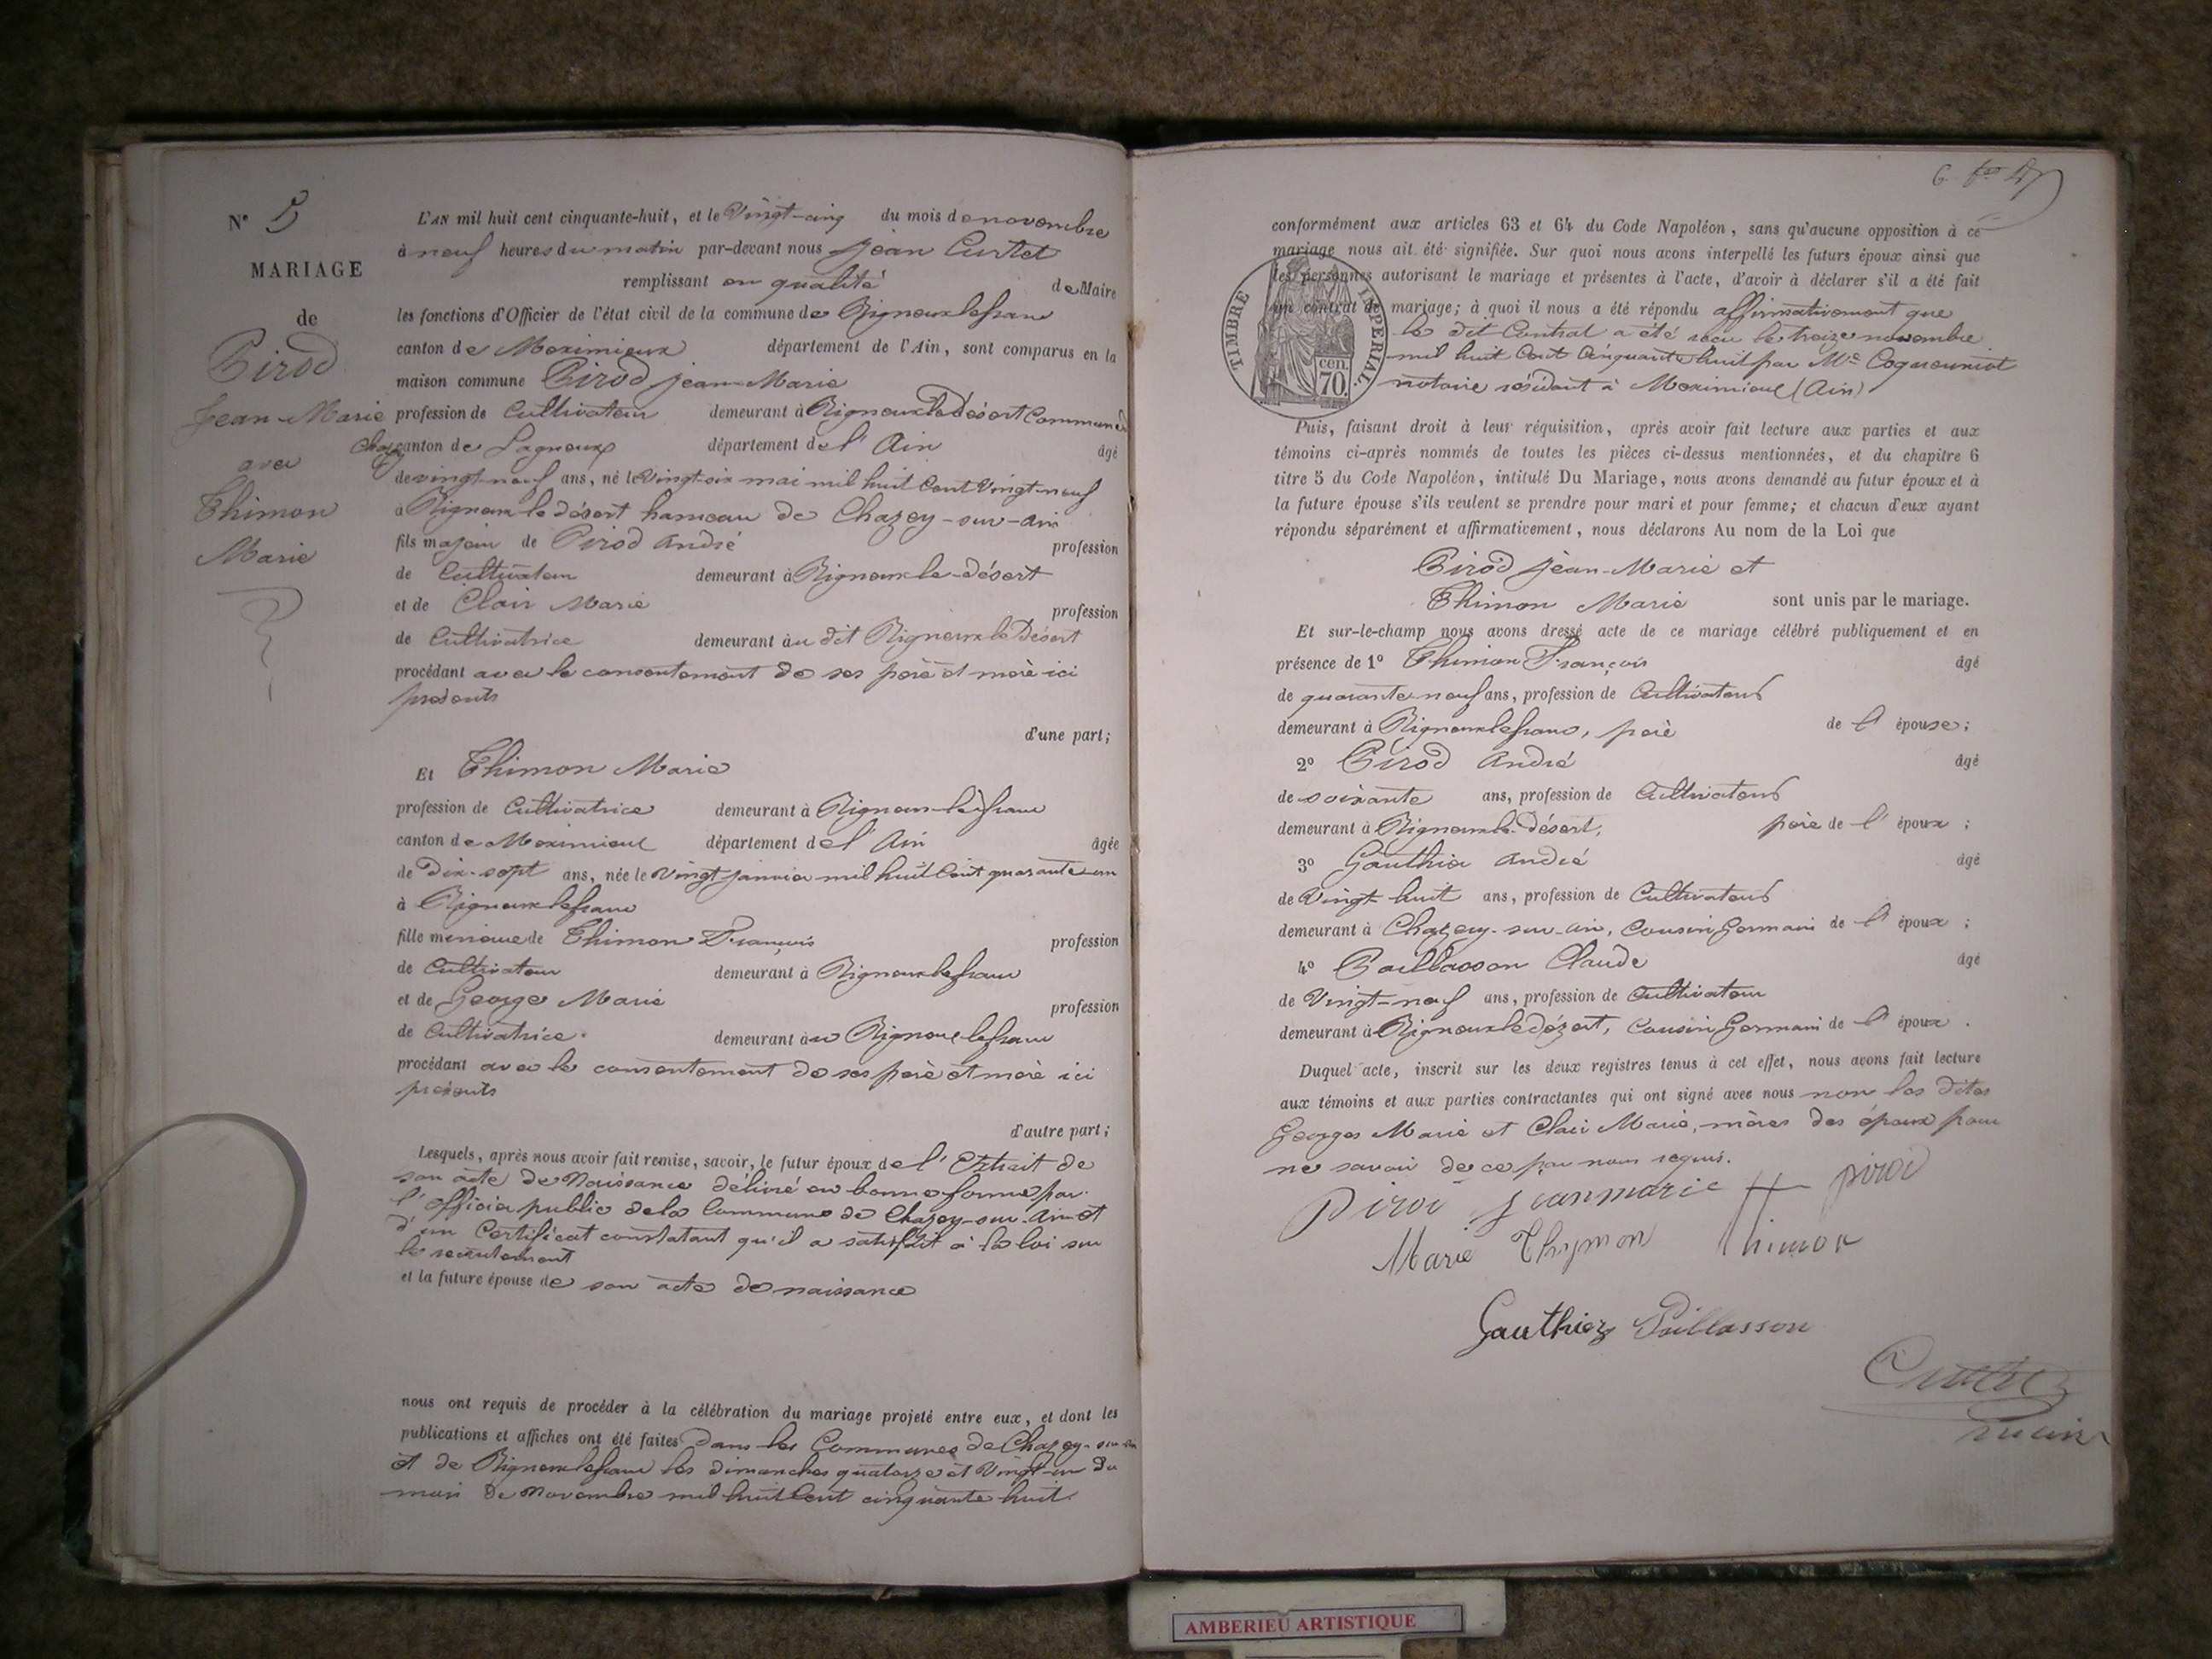 N° 5
MARIAGE
de
Pirod
Jean-Marie
avec
Thimon
Marie
L'AN mil huit cent cinquante-huit, et le Vingt-cinq du mois de novembre
à neuf heures du matin par-devant nous Jean Curtet
remplissant en qualité de Maire
les fonctions d'Officier de l'état civil de la commune de Rigneux le franc
canton de Meximieux département de l'Ain, sont comparus en la
maison commune Pirod Jean-Marie
profession de Cultivateur demeurant à Rigneux le Désert Commune de
Chazey canton de Lagneux département de l'Ain âgé
de vingt-neuf ans, né le Vingt-six mai mil huit Cent Vingt-neuf
à Rigneux le désert hameau de Chazey-sur-Ain
fils majeur de Pirod André profession
de Cultivateur demeurant à Rigneux le-désert
et de Clair Marie profession
de Cultivatrice demeurant au dit Rigneux le Désert
procédant avec le consentement de ses père et mère ici
présents
d'une part;
Et Thimon Marie
profession de Cultivatrice demeurant à Rigneux-le-franc
canton de Meximieux département de l'Ain âgée
de Dix-sept ans, née le Vingt janvier mil huit Cent quarante-un
à Rigneux le franc
fille mineure de Thimon François profession
de Cultivateur demeurant à Rigneux le franc
et de George Marie profession
de Cultivatrice. demeurant au Rigneux le franc
procédant avec le consentement de ses père et mère ici
présents
d'autre part;
Lesquels, après nous avoir fait remise, savoir, le futur époux de l'Extrait de
son acte de Naissance délivré en bonne forme par
l'officier public de la Commune de Chazey-sur-Ain et
d'un Certificat constatant qu'il a satisfait à la loi sur
le recrutement
et la future épouse de son acte de naissance
nous ont requis de procéder à la célébration du mariage projeté entre eux, et dont les
publications et affiches ont été faites dans les Communes de Chazey-sur-Ain
et de Rigneux le franc les dimanches quatorze et Vingt-un du
mois de Novembre mil huit Cent cinquante huit.
conformément aux articles 63 et 64 du Code Napoléon, sans qu'aucune opposition à ce
mariage nous ait été signifiée. Sur quoi nous avons interpellé les futurs époux ainsi que
les personnes autorisant le mariage et présentes à l'acte, d'avoir à déclarer s'il a été fait
un contrat de mariage; à quoi il nous a été répondu affirmativement que
le dit Contrat a été reçu le treize novembre
mil huit Cent Cinquante huit par Me
notaire résidant à Meximieux (Ain)
TIMBRE IMPERIAL.
cen.
70.
Puis, faisant droit à leur réquisition, après avoir fait lecture aux parties et aux
témoins ci-après nommés de toutes les pièces ci-dessus mentionnées, et du chapitre 6
titre 5 du Code Napoléon, intitulé Du Mariage, nous avons demandé au futur époux et à
la future épouse s'ils veulent se prendre pour mari et pour femme; et chacun d'eux ayant
répondu séparément et affirmativement, nous déclarons Au nom de la Loi que
Pirod Jean-Marie et
Thimon Marie sont unis par le mariage.
Et sur-le-champ nous avons dressé acte de ce mariage célébré publiquement et en
présence de 1° Thimon François âgé
de quarante-neuf ans, profession de Cultivateur
demeurant à Rigneux le franc, père de l'épouse;
2° Pirod André âgé
de soixante ans, profession de Cultivateur
demeurant à Rigneux le-Désert, père de l'époux;
3° Gauthier André âgé
de Vingt-huit ans, profession de Cultivateur
demeurant à Chazey-sur-Ain, Cousin Germain de l'époux;
4° Paillasson Claude âgé
de Vingt-neuf ans, profession de Cultivateur
demeurant à Rigneux le dézert, Cousin Germain de l'époux.
Duquel acte, inscrit sur les deux registres tenus à cet effet, nous avons fait lecture
aux témoins et aux parties contractantes qui ont signé avec nous non les dites
Georges Marie et Clair Marie, mères des époux pour
ne savoir de ce par nous requis.
piroi jeanmarie piroi
Marie Thymon Thimon
Gauthier Paillasson
Curtet
AMBERIEU ARTISTIQUE